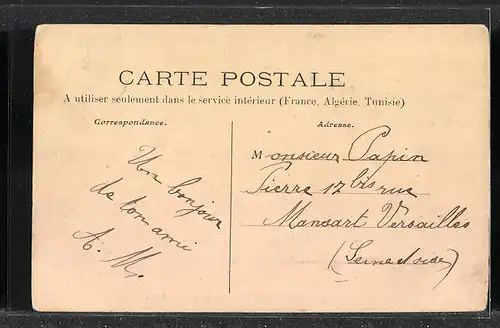 CARTE POSTALE
A utiliser seulement dans le service intérieur (France, Algérie, Tunisie)
Correspondance.
Un bonjour
de ton ami
A. M.
Adresse.
Monsieur Papin
Pierre 17 bis rue
Mansart Versailles
(Seine et oise)